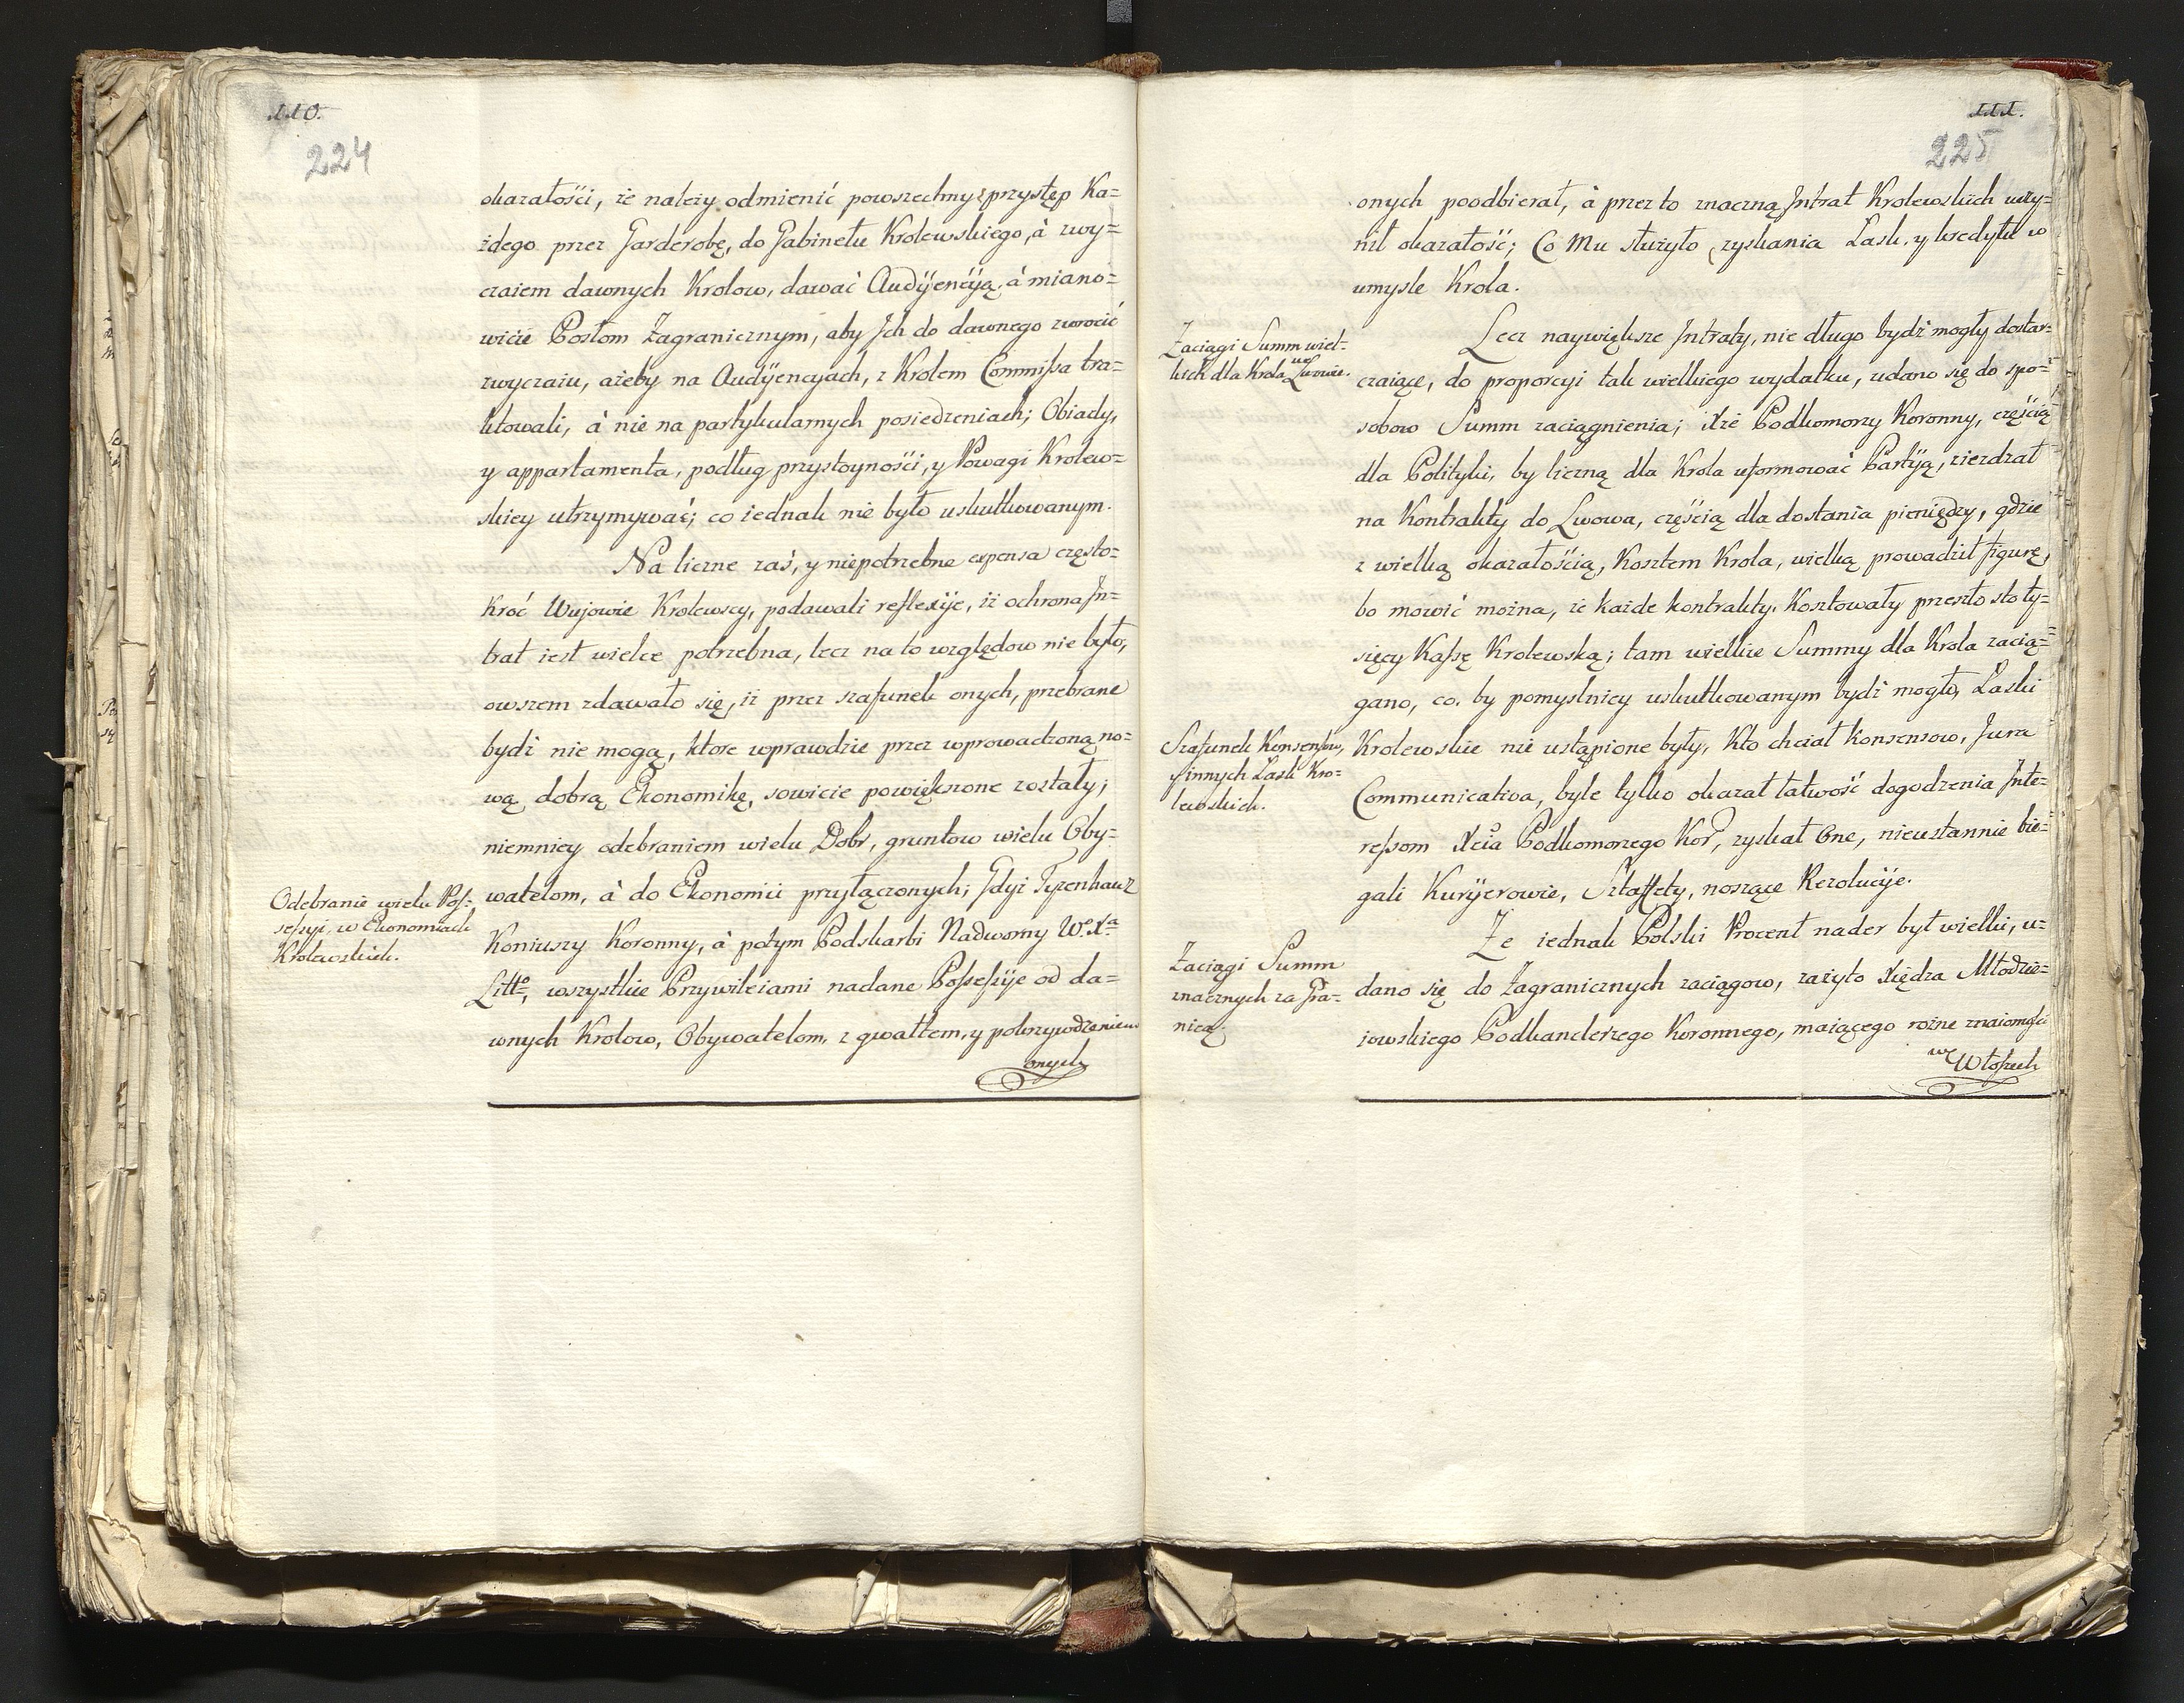 110.
224
okazałości, że należy odmienić powszechny przystęp Ka=
żdego przez Garderobę, do Gabinetu Krolewskiego, à zwy=
czaiem dawnych Krolow, dawać Audÿencÿą, à miano=
wicie Posłom Zagranicznym, aby Jch do dawnego zwrocić
zwyczaiu, ażeby na Audÿencyach, z Krolem Commissa tra=
ktowali, à nie na partykularnych posiedzeniach; Obiady,
y appartamenta, podług przystoyności, y Powagi Krolew=
skiey utrzymywać; co iednak nie było uskutkowanym.
Na liczne zaś, y niepotrzebne expensa często=
kroć Wujowie Krolewscy, podawali reflexije, iż ochrona Jn=
trat iest wielce potrzebna, lecz na to względow nie było,
owszem zdawało się, iż przez szafunek onych, przebrane
bydź nie mogą, ktore wprawdzie przez wprowadzoną no=
wą dobrą Ekonomikę, sowicie powiększone zostały;
niemniey odebraniem wielu Dobr, gruntow wielu Oby=
Odebranie wielu Pos=
sessyi, w Ekonomiach
Krolewskich.
watelom, à do Ekonomii przyłączonych; Gdyż Tyzenhauz
Koniuszy Koronny, à potym Podskarbi Nadworny W. X.
Litto, wszystkie Przywileiami nadane Possessÿe od da=
wnych Krolow, Obywatelom, z gwałtem, y pokrzywdzeniem
onych
111.
225
onych poodbierał, à przez to znaczną Jntrat Krolewskich uczy=
nił okazałość; Co Mu służyło zyskania Łask, y kredytu w
umysle Krola.
Zaciągi Summ wiel=
kich dla Krola we Lwowie.
Lecz naywiększe Jntraty, nie długo bydź mogły dostar=
czaiące, do proporcyi tak wielkiego wydatku, udano się do spo=
sobow Summ zaciągnienia; Xże Podkomorzy Koronny, częścią
dla Polityki, by liczną dla Krola uformować Partÿą, ziezdzał
na Kontrakty do Lwowa, częścią dla dostania pieniędzy, gdzie
z wielką okazałością, Kosztem Krola, wielką prowadził figurę,
bo mowić można, że każde kontrakty, Kosztowały przeszło sto ty=
sięcy Kassę Krolewską; tam wielkie Summy dla Krola zacią=
gano, co. by pomyslnicy uskutkowanym bydź mogło, Łaski
Szafunek Konsensow,
y innych Łask Kro=
lewskich.
Krolewskie nie ustąpione były, Kto chciał konsensow, Jura
Communicativa, byle tylko okazał łatwość dogodzenia Jnte=
ressom Xcia Podkomorzego Kor, zyskał One, nieustannie bie=
gali Kurÿerowie, Sztaffety, noszące Rezolucÿe.
Ze iednak Polski Procent nader był wielki, u=
Zaciągi Summ
znacznych za Gra=
nicą.
dano się do Zagranicznych zaciągow, zażyto Xiędza Młodzie=
iowskiego Podkanclerzego Koronnego, maiącego rożne znaiomości
we Włoszech